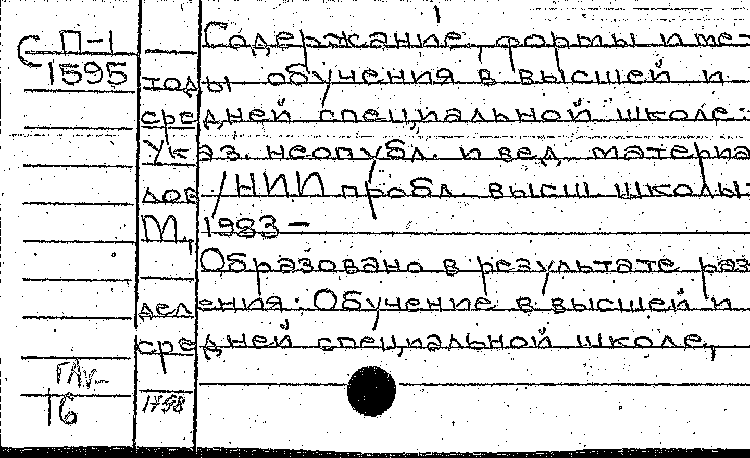 П-1
С 1595
Содержание, формы и ме-
тоды обучения в высшей и
средней специальной школе:
Указ. неопубл. и вед. материа-
лов /НИИ пробл. высш. школы-
М., 1983 -
Образовано в результате раз
деления: Обучение в высшей и
средней специальной школе,
16